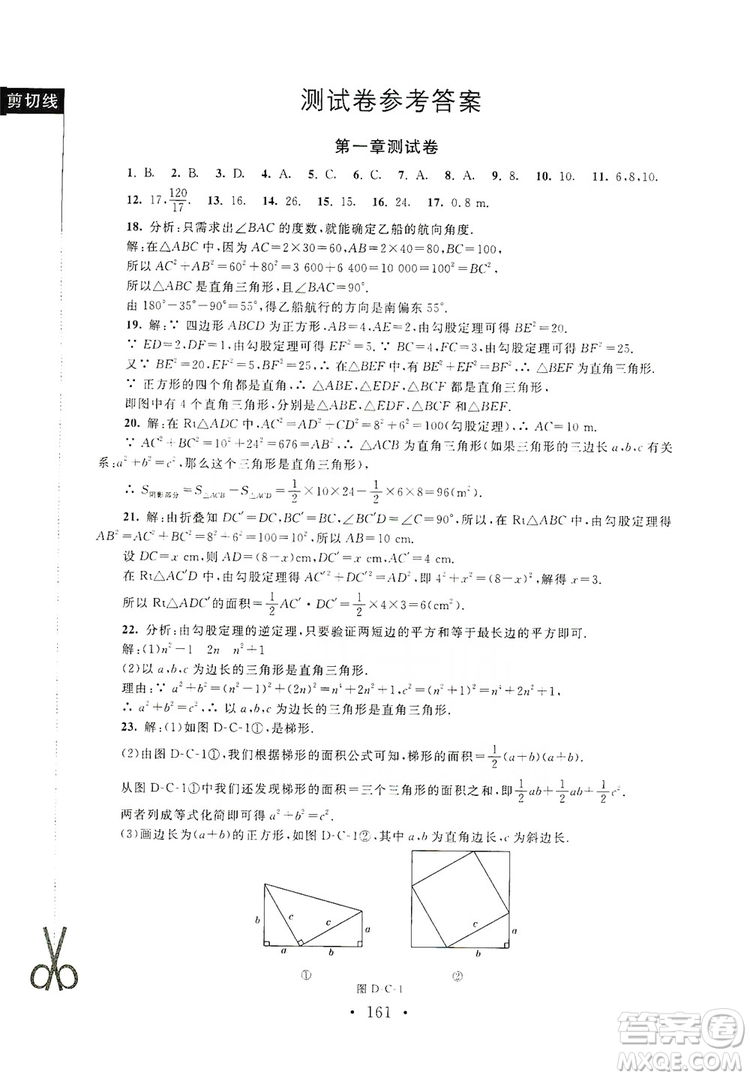 剪切线
测试卷参考答案
第一章测试卷
1. B. 2. B. 3. D. 4. A. 5. C. 6. A. 7. C. 8. A. 9. 8. 10. 10. 11. 6,8,10.
12. 17,120/17. 13. 16. 14. 26. 15. 16. 16. 24. 17. 0.8 m.
18. 分析:只需求出∠BAC的度数,就能确定乙船的航向角度.
解:在△ABC中,因为AC=2×30=60,AB=2×40=80,BC=100,
所以AC²+AB²=60²+80²=3 600+6 400=10 000=BC².
所以△ABC是直角三角形,且∠BAC=90°.
由180°-35°-90°=55°,得乙船航行的方向是南偏东55°.
19. 解:∵四边形ABCD为正方形,AB=4,AE=2,由勾股定理得BE²=20.
∵ED=2,DF=1,由勾股定理得EF²=5.∵BC=4,FC=3,由勾股定理得BF²=25.
又∵BE²=20,EF²=5,BF²=25,且BE²+EF²=BF²,∴△BEF是直角三角形.
∵正方形的四个角都是直角,∴△ABE、△DEF、△BCF都是直角三角形,
即图中有4个直角三角形,分别是△ABE、△DEF、△BCF、△BEF.
20. 解:在Rt△ADC中,AC²=AD²+CD²=8²+6²=100(勾股定理),∴AC=10 m.
∵AC²+BC²=10²+24²=676=AB²,∴△ACB为直角三角形(如果三角形的三边长a,b,c有关
系:a²+b²=c²,那么这个三角形是直角三角形),
∴S阴影部分=S△ACB-S△ACD=1/2×10×24-1/2×6×8=96(m²).
21. 解:由折叠知DC′=DC,BC′=BC,∠BC′D=∠C=90°,所以在Rt△ABC中,由勾股定理得
AB²=AC²+BC²=8²+6²=100=10²,所以AB=10,AC′=10-6=4.
设DC=x cm,则AD=(8-x)cm.
在Rt△AC′D中,由勾股定理得AC′²+DC′²=AD²,即4²+x²=(8-x)²,解得x=3.
所以Rt△ADC′的面积=1/2AC′·DC′=1/2×4×3=6(cm²).
22. 分析:由勾股定理的逆定理,只要验证两短边的平方和等于最长边的平方即可.
解:(1)n²-1 2n n²+1
(2)以a,b,c为边长的三角形是直角三角形.
理由:∵a²+b²=(n²-1)²+(2n)²=n⁴+2n²+1,c²=(n²+1)²=n⁴+2n²+1,
∴a²+b²=c²,∴以a,b,c为边长的三角形是直角三角形.
23. 解:(1)如图D-C-1①,是梯形.
(2)由图D-C-1①,我们根据梯形的面积公式可知,梯形的面积=1/2(a+b)(a+b).
从图D-C-1①中我们还发现梯形的面积=三个三角形的面积和,即1/2ab+1/2ab+1/2c².
两者列成等式化简即可得a²+b²=c².
(3)画边长为(a+b)的正方形,如图D-C-1②,其中a,b为直角边长,c为斜边长.
b c c a
a b
c a
b
① ②
图D-C-1
· 161 ·
答案圈
MXQE.COM